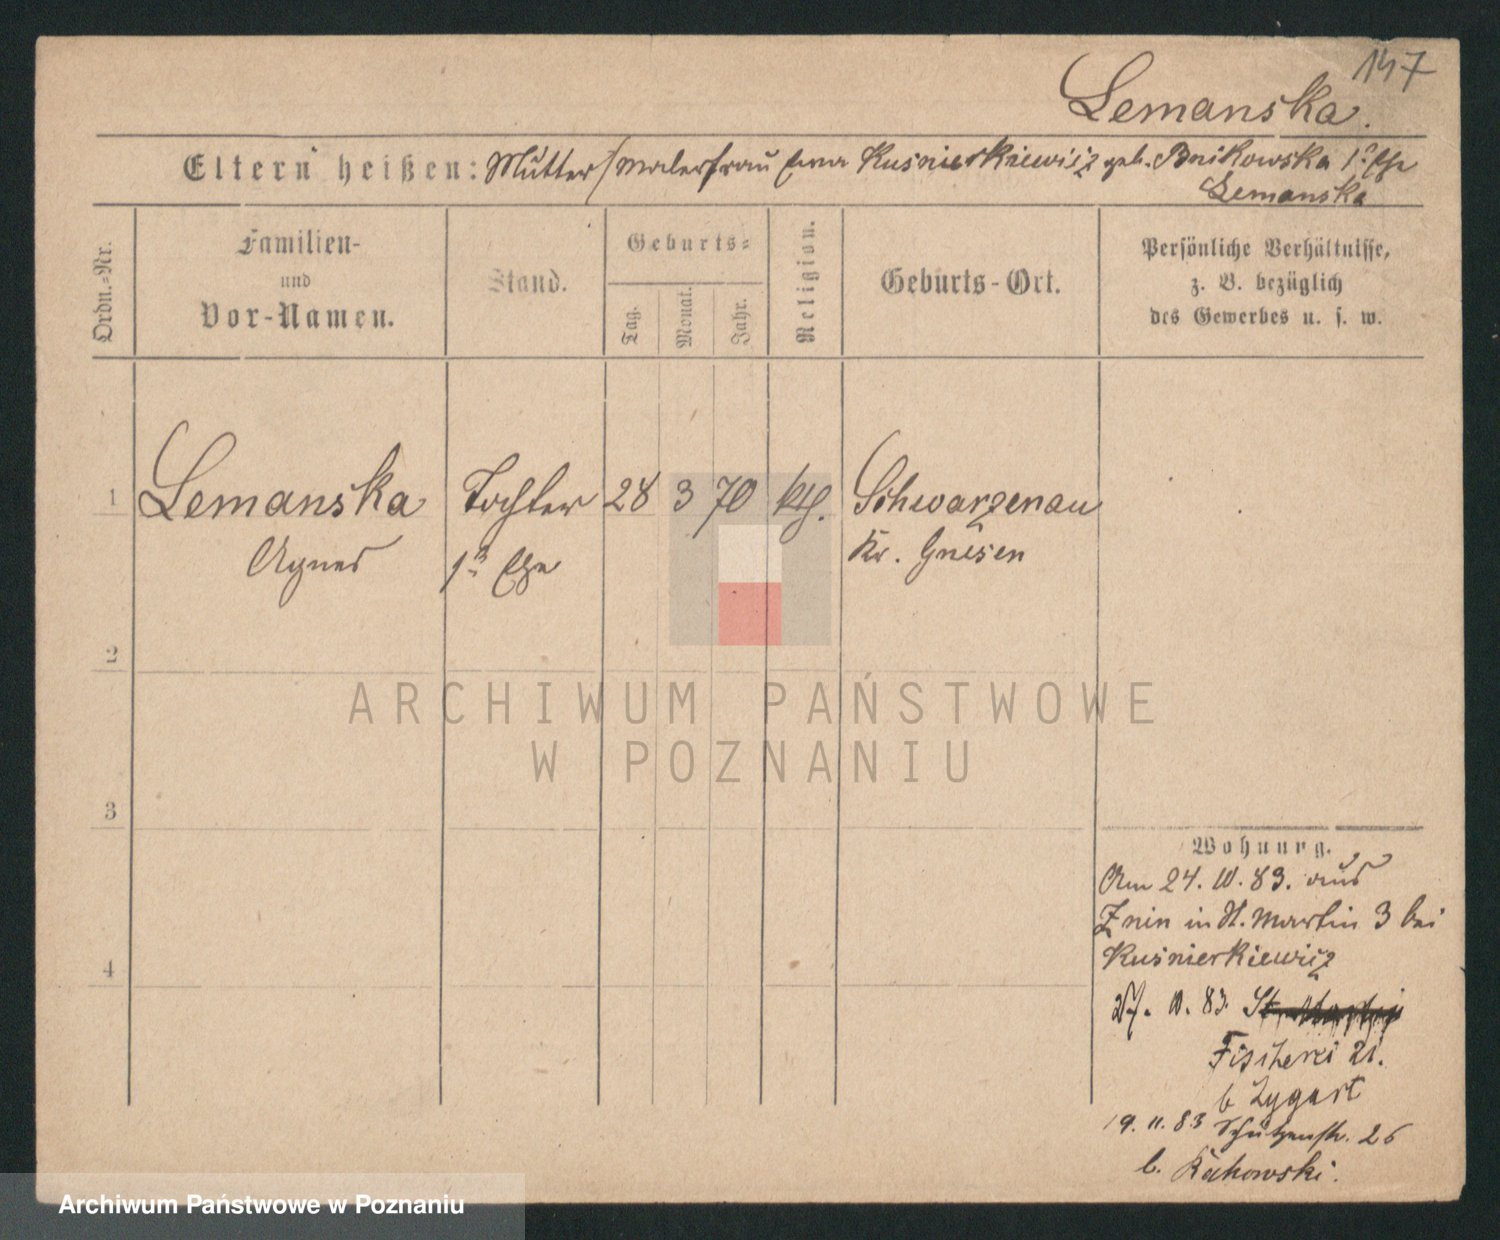 147
Lemanska.
Eltern heißen: Mutter / Malerfrau Kuśnierkiewicz geb. Bnikowska 1r Ehe
Lemanska
Ordn.-Nr.
Familien-
und
Vor-Namen.
Stand.
Geburts-
Tag.
Monat.
Jahr.
Religion.
Geburts-Ort.
Persönliche Verhältnisse,
z. B. bezüglich
des Gewerbes u. s. w.
1 Lemanska Tochter 28 3 70 kth. Schwarzenau
Agnes 1r Ehe Kr. Gnesen
2
3
4
Wohnung.
Am 24. 10. 83. aus
Znin in St. Martin 3 bei
Kuśnierkiewicz
27. 10. 83.
Fischerei 21.
b Zygart
19. 11. 83 Schützenstr. 26
b. Rakowski.
ARCHIWUM PAŃSTWOWE
W POZNANIU
Archiwum Państwowe w Poznaniu